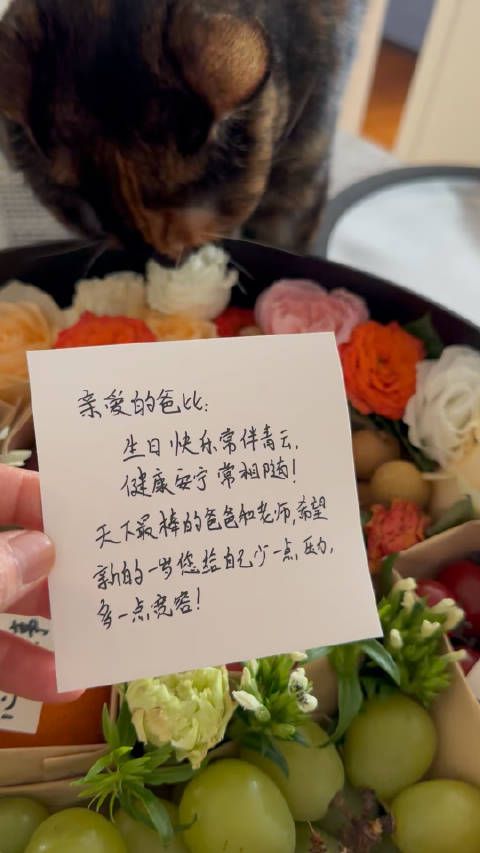 亲爱的爸比:
生日快乐常伴青云,
健康安宁常相随!
天下最棒的爸爸和老师,希望
新的一岁您给自己少一点压力,
多一点宽容!